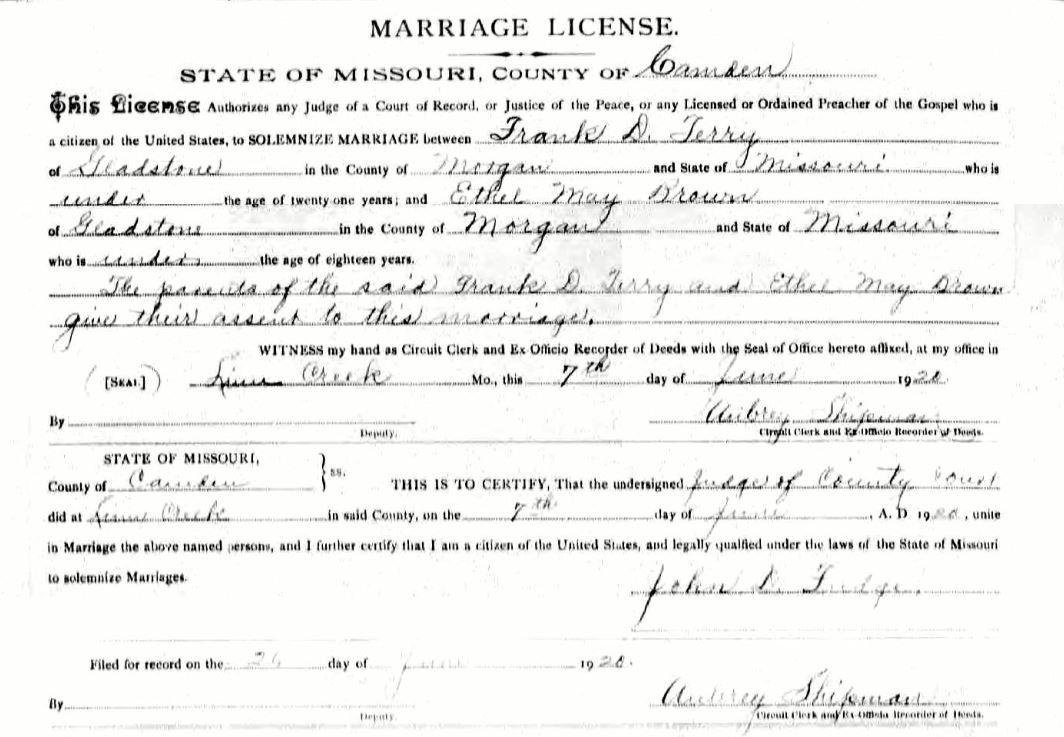 MARRIAGE LICENSE.
STATE OF MISSOURI, COUNTY OF Camden
This License Authorizes any Judge of a Court of Record, or Justice of the Peace, or any Licensed or Ordained Preacher of the Gospel who is
a citizen of the United States, to SOLEMNIZE MARRIAGE between Frank D. Terry
of Gladstone in the County of Morgan and State of Missouri who is
under the age of twenty-one years; and Ethel May Brown
of Gladstone in the County of Morgan and State of Missouri
who is under the age of eighteen years.
The parents of the said Frank D. Terry and Ethel May Brown
give their assent to this marriage.
WITNESS my hand as Circuit Clerk and Ex Officio Recorder of Deeds with the Seal of Office hereto affixed, at my office in
[SEAL] Linn Creek Mo., this 7th day of June 1920
By Aubrey Shipman
Deputy. Circuit Clerk and Ex-Officio Recorder of Deeds.
STATE OF MISSOURI,
County of Camden ss. THIS IS TO CERTIFY, That the undersigned Judge of County Court
did at Linn Creek in said County, on the 7th day of June, A. D 1920, unite
in Marriage the above named persons, and I further certify that I am a citizen of the United States, and legally qualfied under the laws of the State of Missouri
to solemnize Marriages.
John Fudge.
Filed for record on the 26 day of June 1920.
By Aubrey Shipman
Deputy. Circuit Clerk and Ex-Officio Recorder of Deeds.